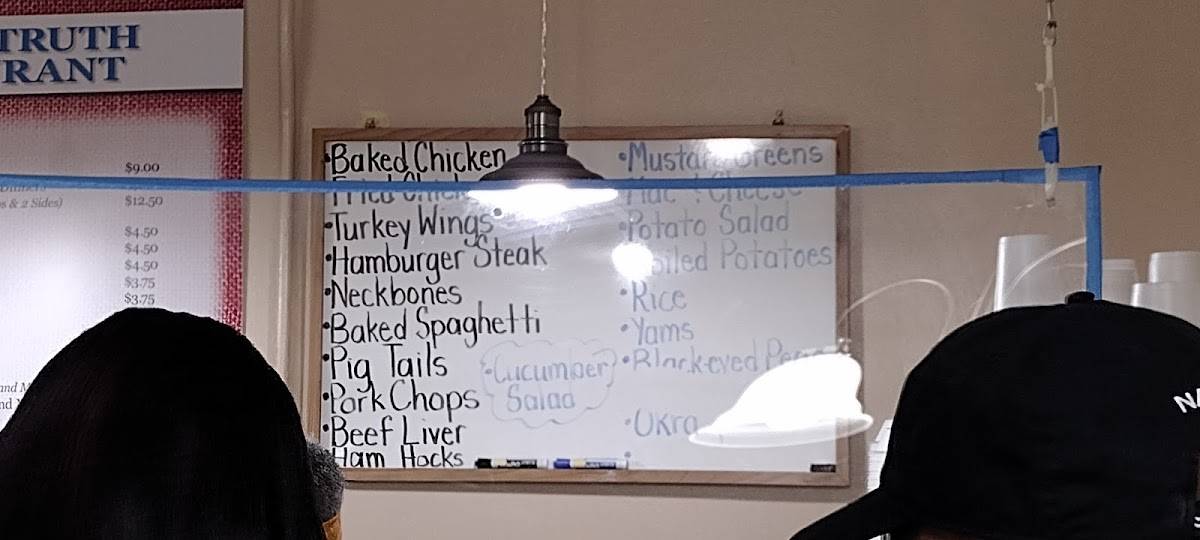 TRUTH
RANT
$9.00
s & 2 Sides)
$12.50
$4.50
$4.50
$4.50
$3.75
$3.75
and M
nd
•Baked Chicken
Fried Chicken
•Turkey Wings
•Hamburger Steak
•Neckbones
•Baked Spaghetti
•Pig Tails
•Pork Chops
•Beef Liver
Ham Hocks
•Cucumber
Salad
•Mustard Greens
Mac & Cheese
•Potato Salad
•Boiled Potatoes
•Rice
•Yams
•Black-eyed Peas
•Okra
NA